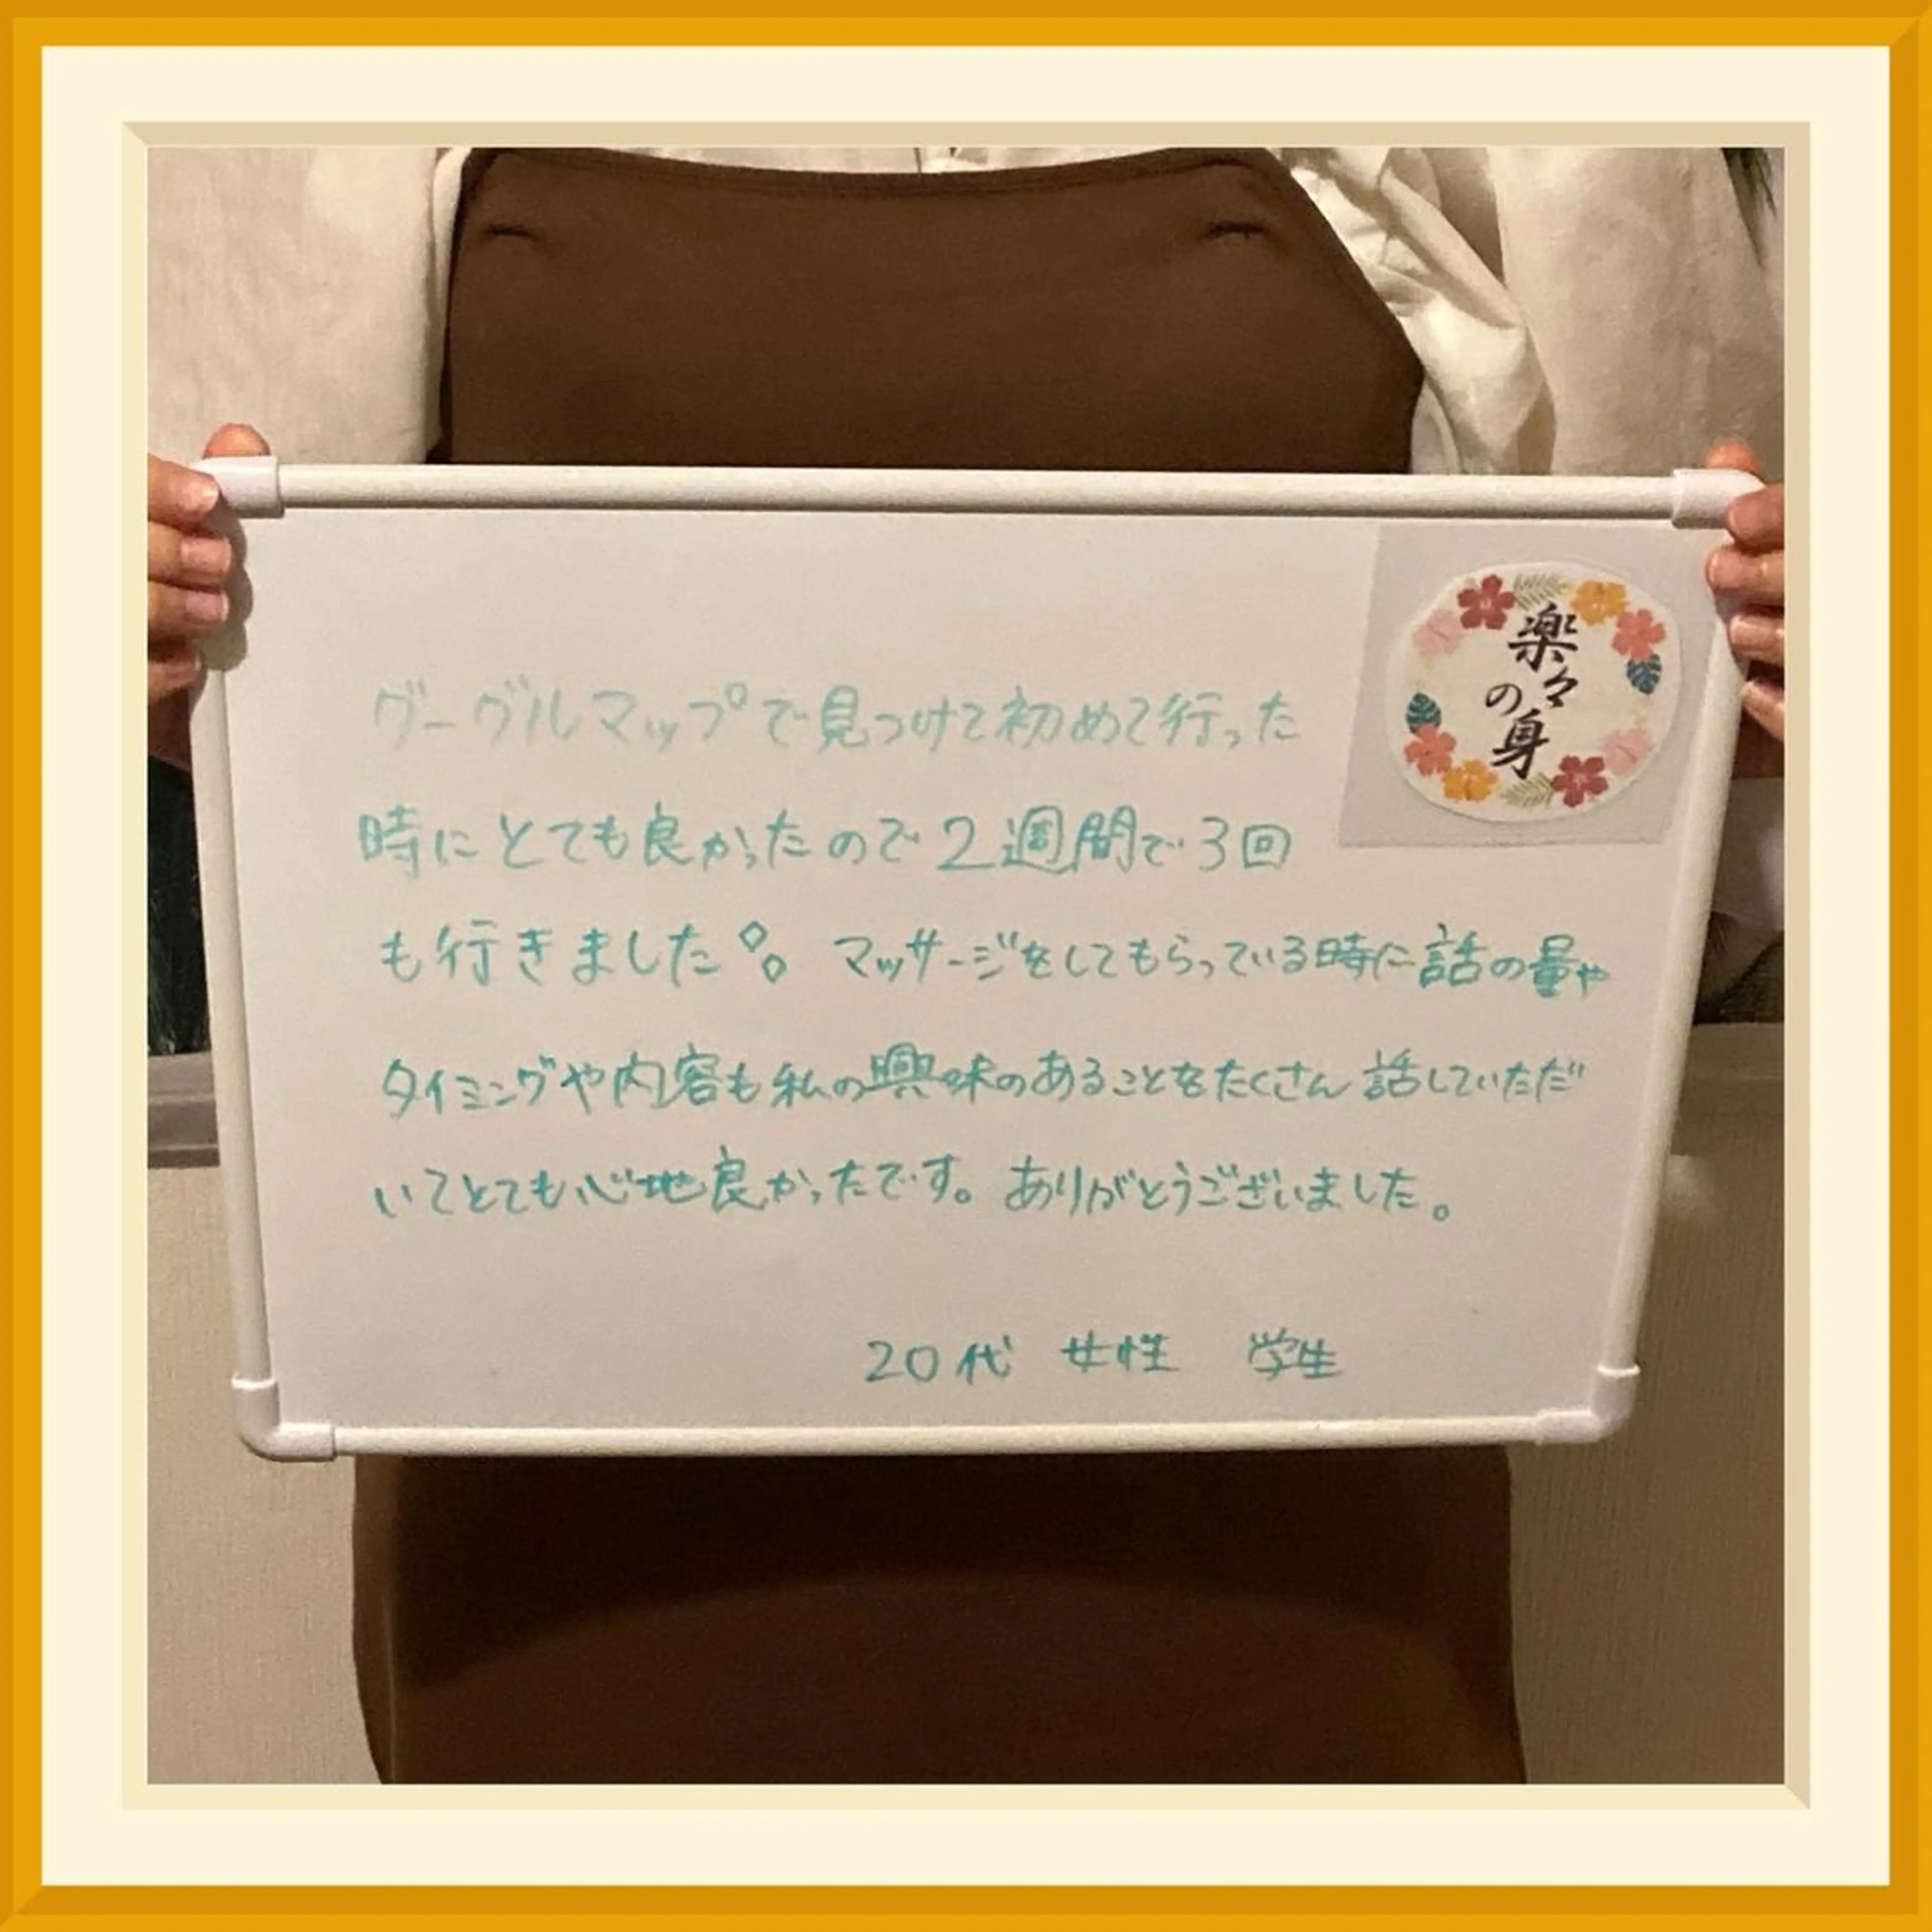 楽々の身
グーグルマップで見つけて初めて行った
時にとても良かったので2週間で3回
も行きました。マッサージをしてもらっている時に話の量や
タイミングや内容も私の興味のあることをたくさん話していただ
いてとても心地良かったです。ありがとうございました。
20代 女性 学生